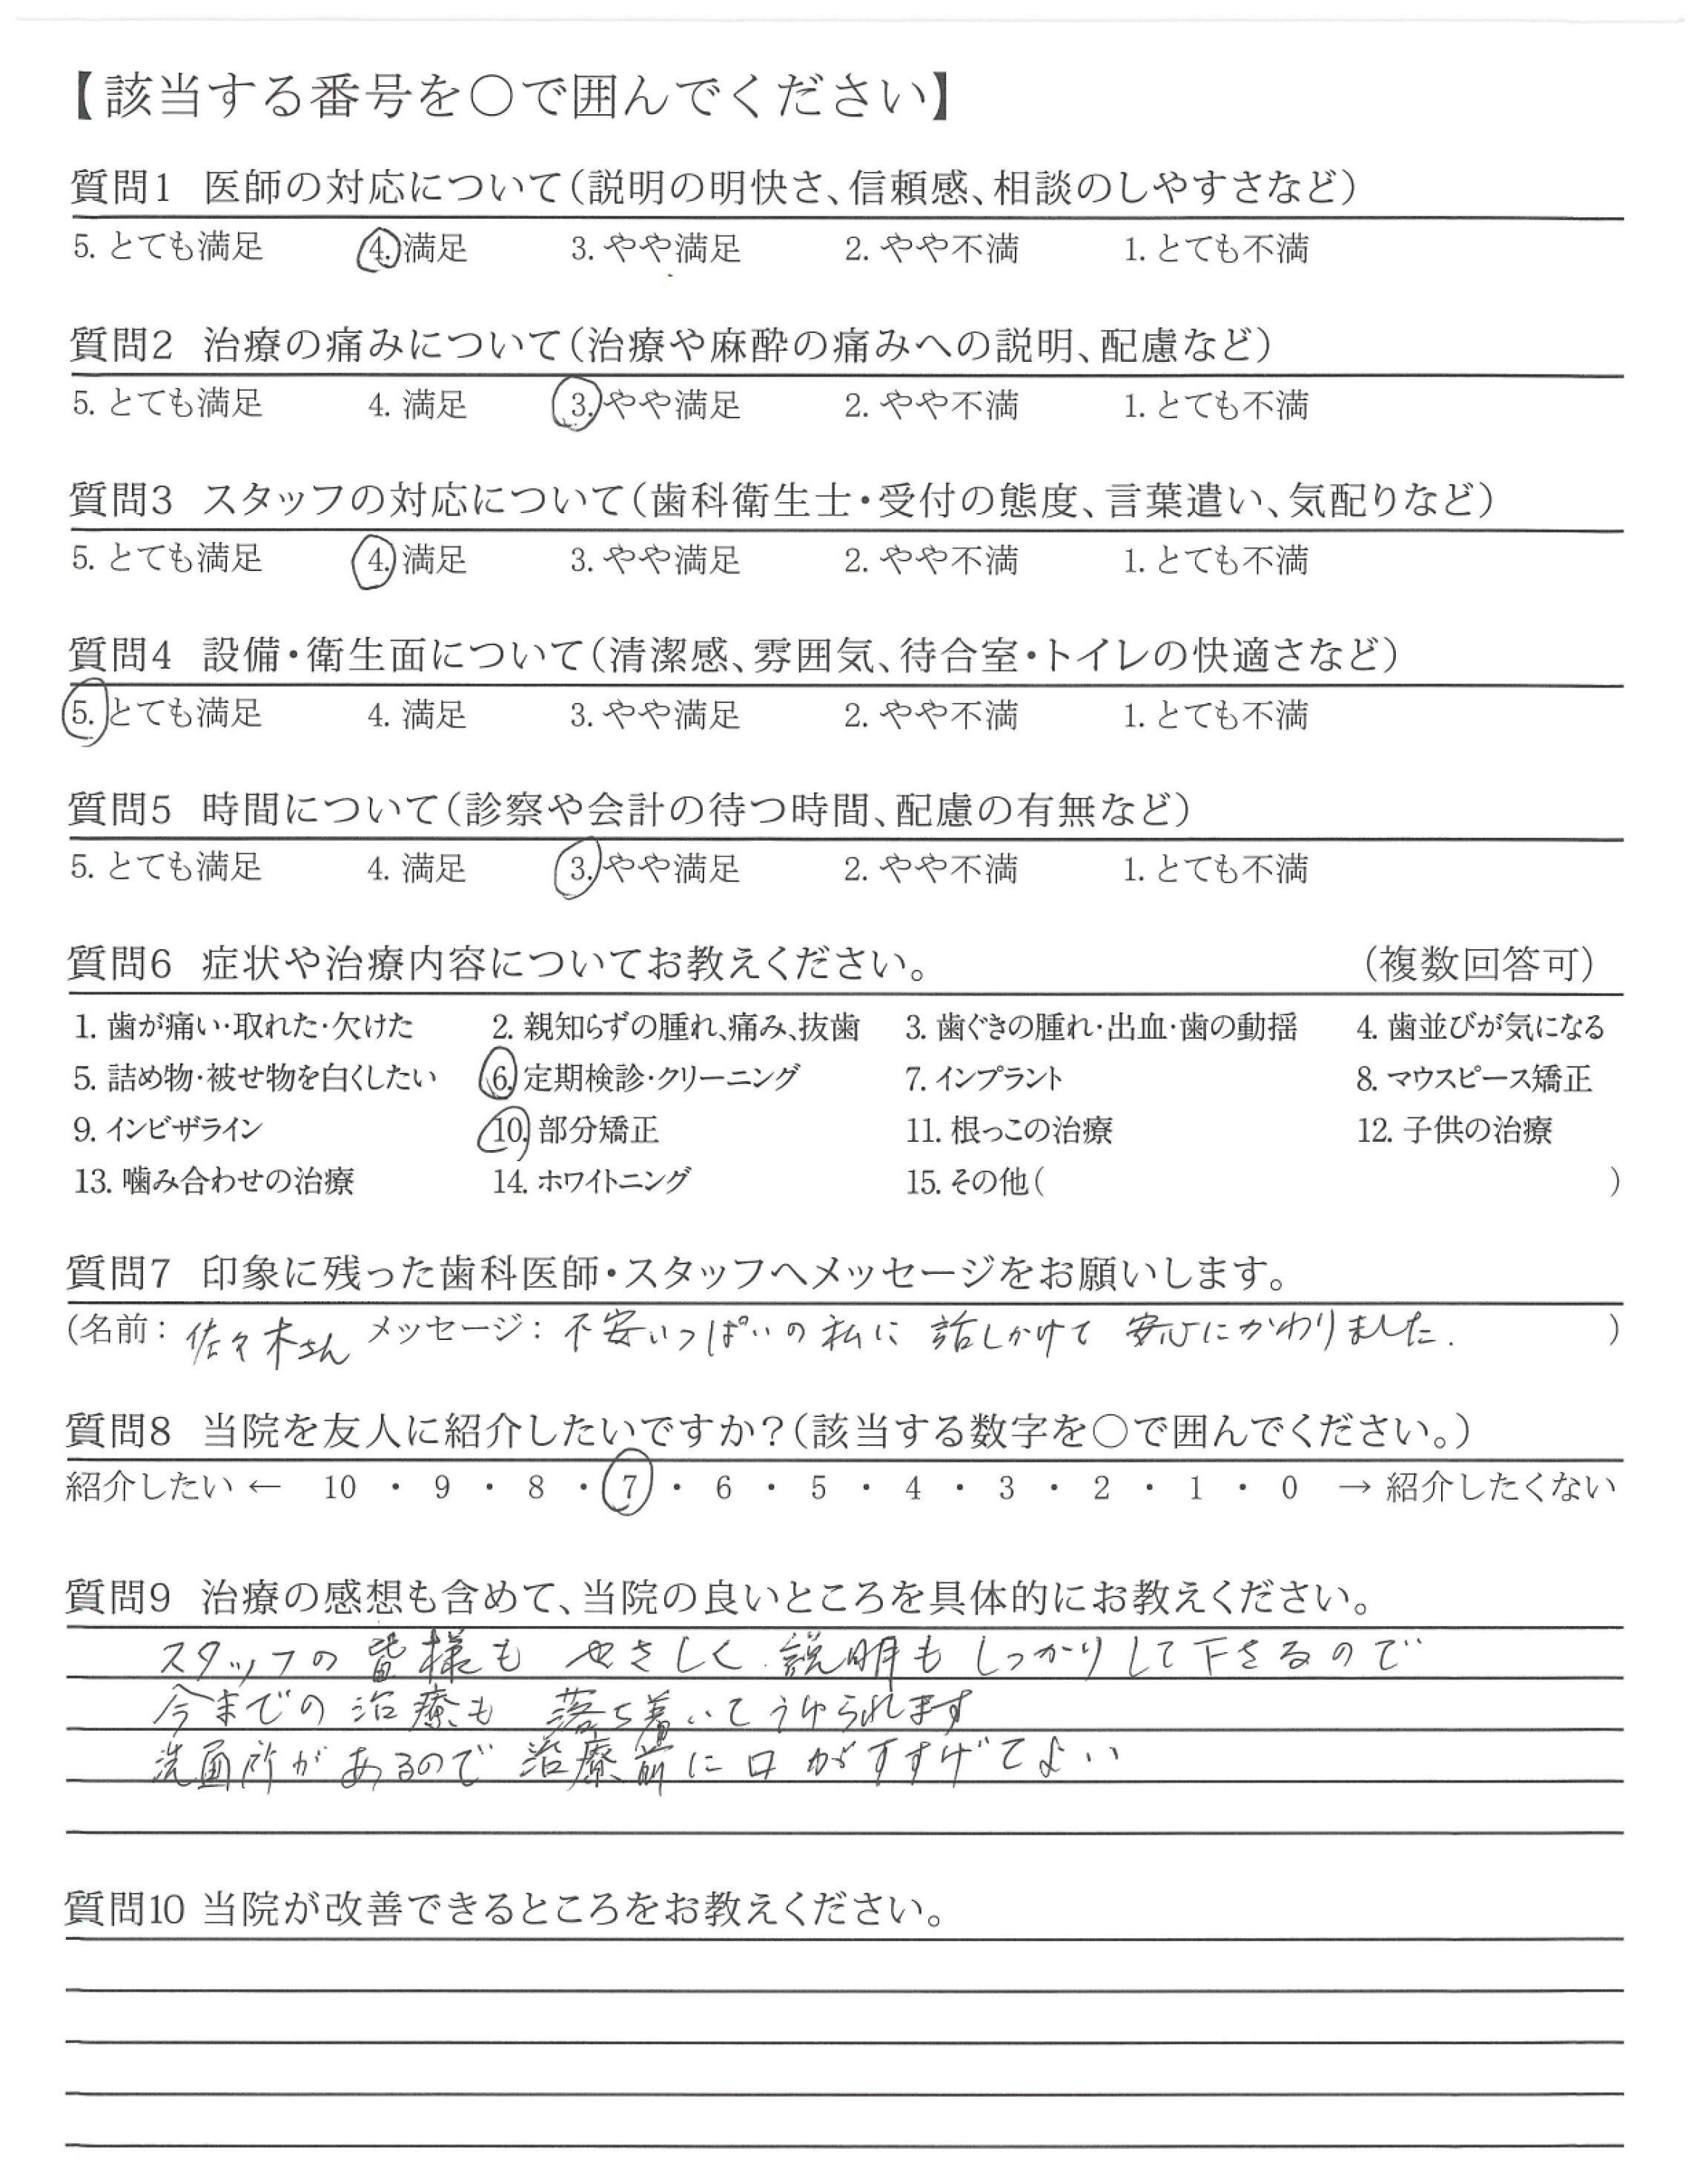 【該当する番号を○で囲んでください】
質問1 医師の対応について(説明の明快さ、信頼感、相談のしやすさなど)
5. とても満足 4. 満足 3. やや満足 2. やや不満 1. とても不満
質問2 治療の痛みについて(治療や麻酔の痛みへの説明、配慮など)
5. とても満足 4. 満足 3. やや満足 2. やや不満 1. とても不満
質問3 スタッフの対応について(歯科衛生士・受付の態度、言葉遣い、気配りなど)
5. とても満足 4. 満足 3. やや満足 2. やや不満 1. とても不満
質問4 設備・衛生面について(清潔感、雰囲気、待合室・トイレの快適さなど)
5. とても満足 4. 満足 3. やや満足 2. やや不満 1. とても不満
質問5 時間について(診察や会計の待つ時間、配慮の有無など)
5. とても満足 4. 満足 3. やや満足 2. やや不満 1. とても不満
質問6 症状や治療内容についてお教えください。 (複数回答可)
1. 歯が痛い・取れた・欠けた 2. 親知らずの腫れ、痛み、抜歯 3. 歯ぐきの腫れ・出血・歯の動揺 4. 歯並びが気になる
5. 詰め物・被せ物を白くしたい 6. 定期検診・クリーニング 7. インプラント 8. マウスピース矯正
9. インビザライン 10. 部分矯正 11. 根っこの治療 12. 子供の治療
13. 噛み合わせの治療 14. ホワイトニング 15. その他( )
質問7 印象に残った歯科医師・スタッフへメッセージをお願いします。
(名前: 佐々木さん メッセージ: 不安いっぱいの私に 話しかけて 安心にかわりました. )
質問8 当院を友人に紹介したいですか?(該当する数字を○で囲んでください。)
紹介したい ← 10 ・ 9 ・ 8 ・ 7 ・ 6 ・ 5 ・ 4 ・ 3 ・ 2 ・ 1 ・ 0 → 紹介したくない
質問9 治療の感想も含めて、当院の良いところを具体的にお教えください。
スタッフの 皆様も やさしく 説明も しっかりして下さるので
今までの 治療も 落ち着いてうけられます
洗面所があるので 治療前に 口がすすげてよい
質問10 当院が改善できるところをお教えください。